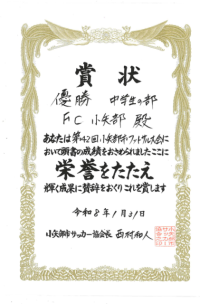 賞状
優勝 中学生の部
FC 小矢部 殿
あなたは第42回小矢部市フットサル大会に
おいて頭書の成績をおさめられましたここに
栄誉をたたえ
輝く成果に賛辞をおくりこれを賞します
令和8年1月31日
小矢部市サッカー協会長 西村和人